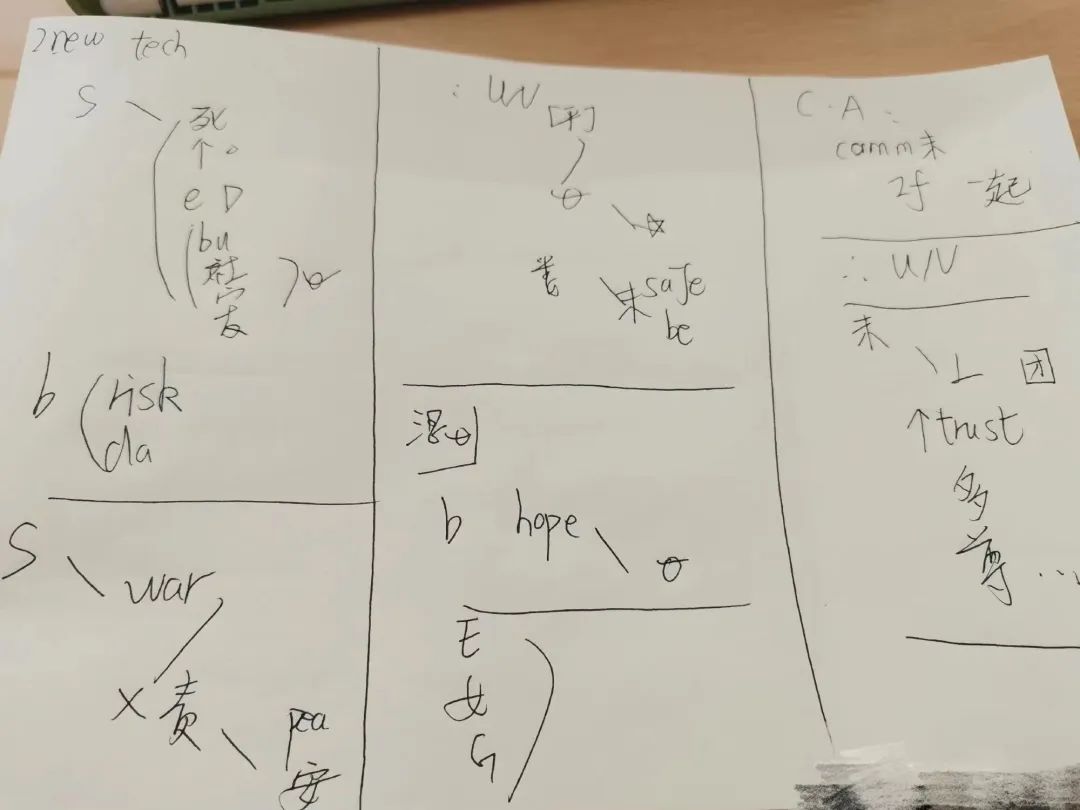 new tech
S
死
个。
e D
bu
社
b
risk
da
S
war
X 责
pea
安
: UN
[平]
safe
未
be
混
b hope
E
女
G
C.A.
comm未
2f 一起
∴ UN
未
团
↑trust
多
尊...